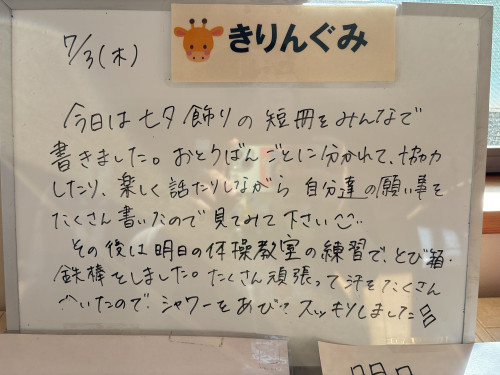 7/3(木)
きりんぐみ
今日は七夕飾りの短冊をみんなで
書きました。おとうばんごとに分かれて、協力
したり、楽しく話したりしながら自分達の願い事を
たくさん書いたので見てみて下さい
その後は明日の体操教室の練習で、とび箱・
鉄棒をしました。たくさん頑張って汗をたくさん
かいたので、シャワーをあびてスッキリしました